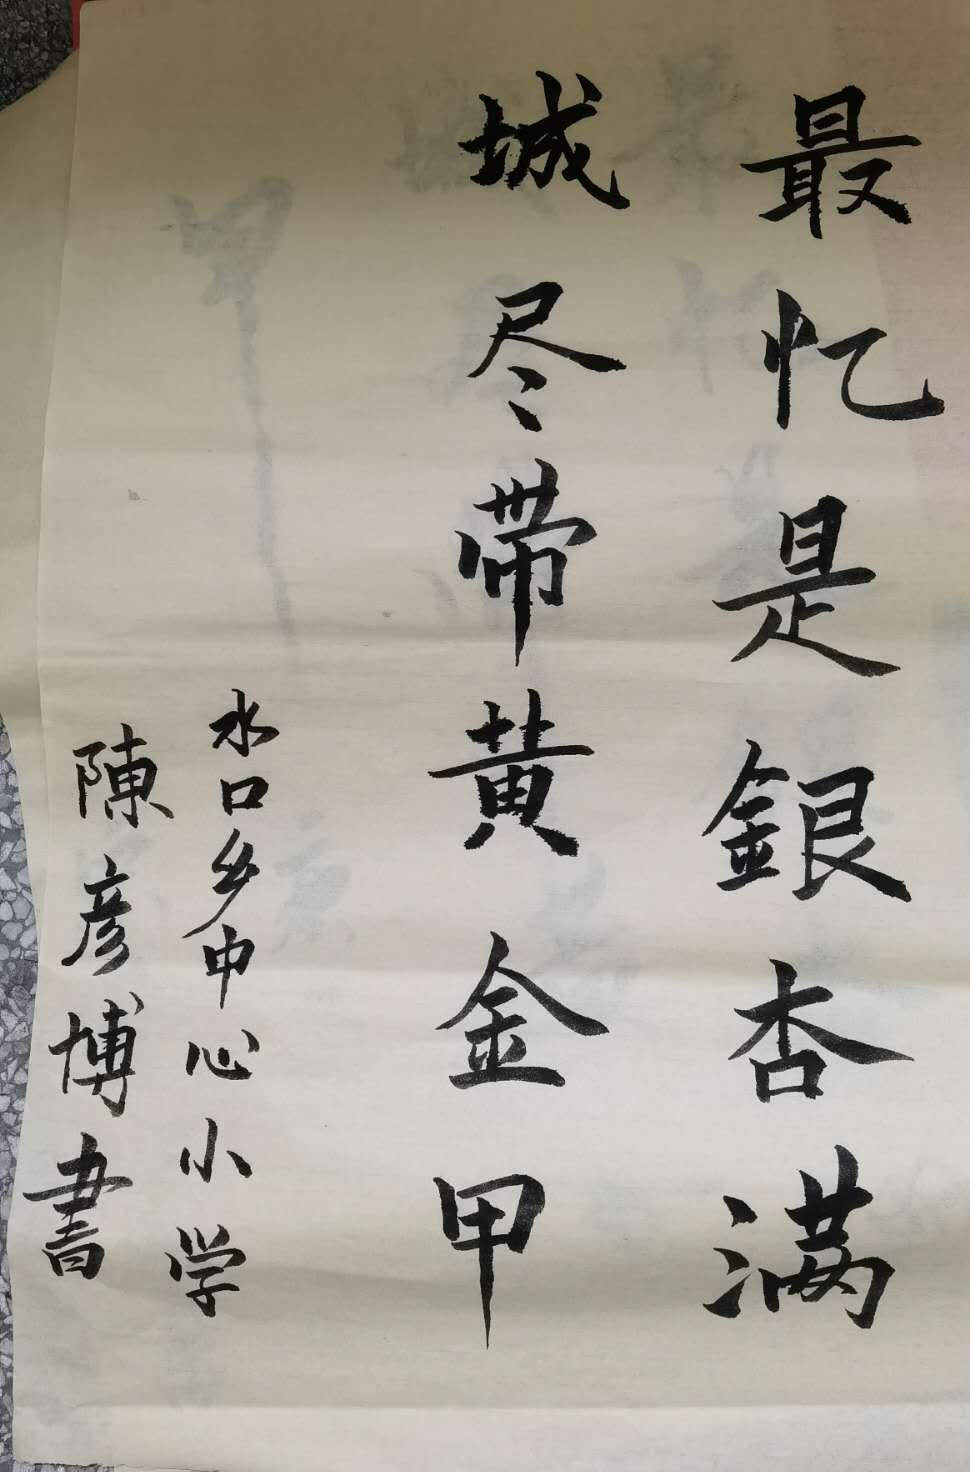 最忆是銀杏满
城尽带黄金甲
水口乡中心小学
陳彦博書